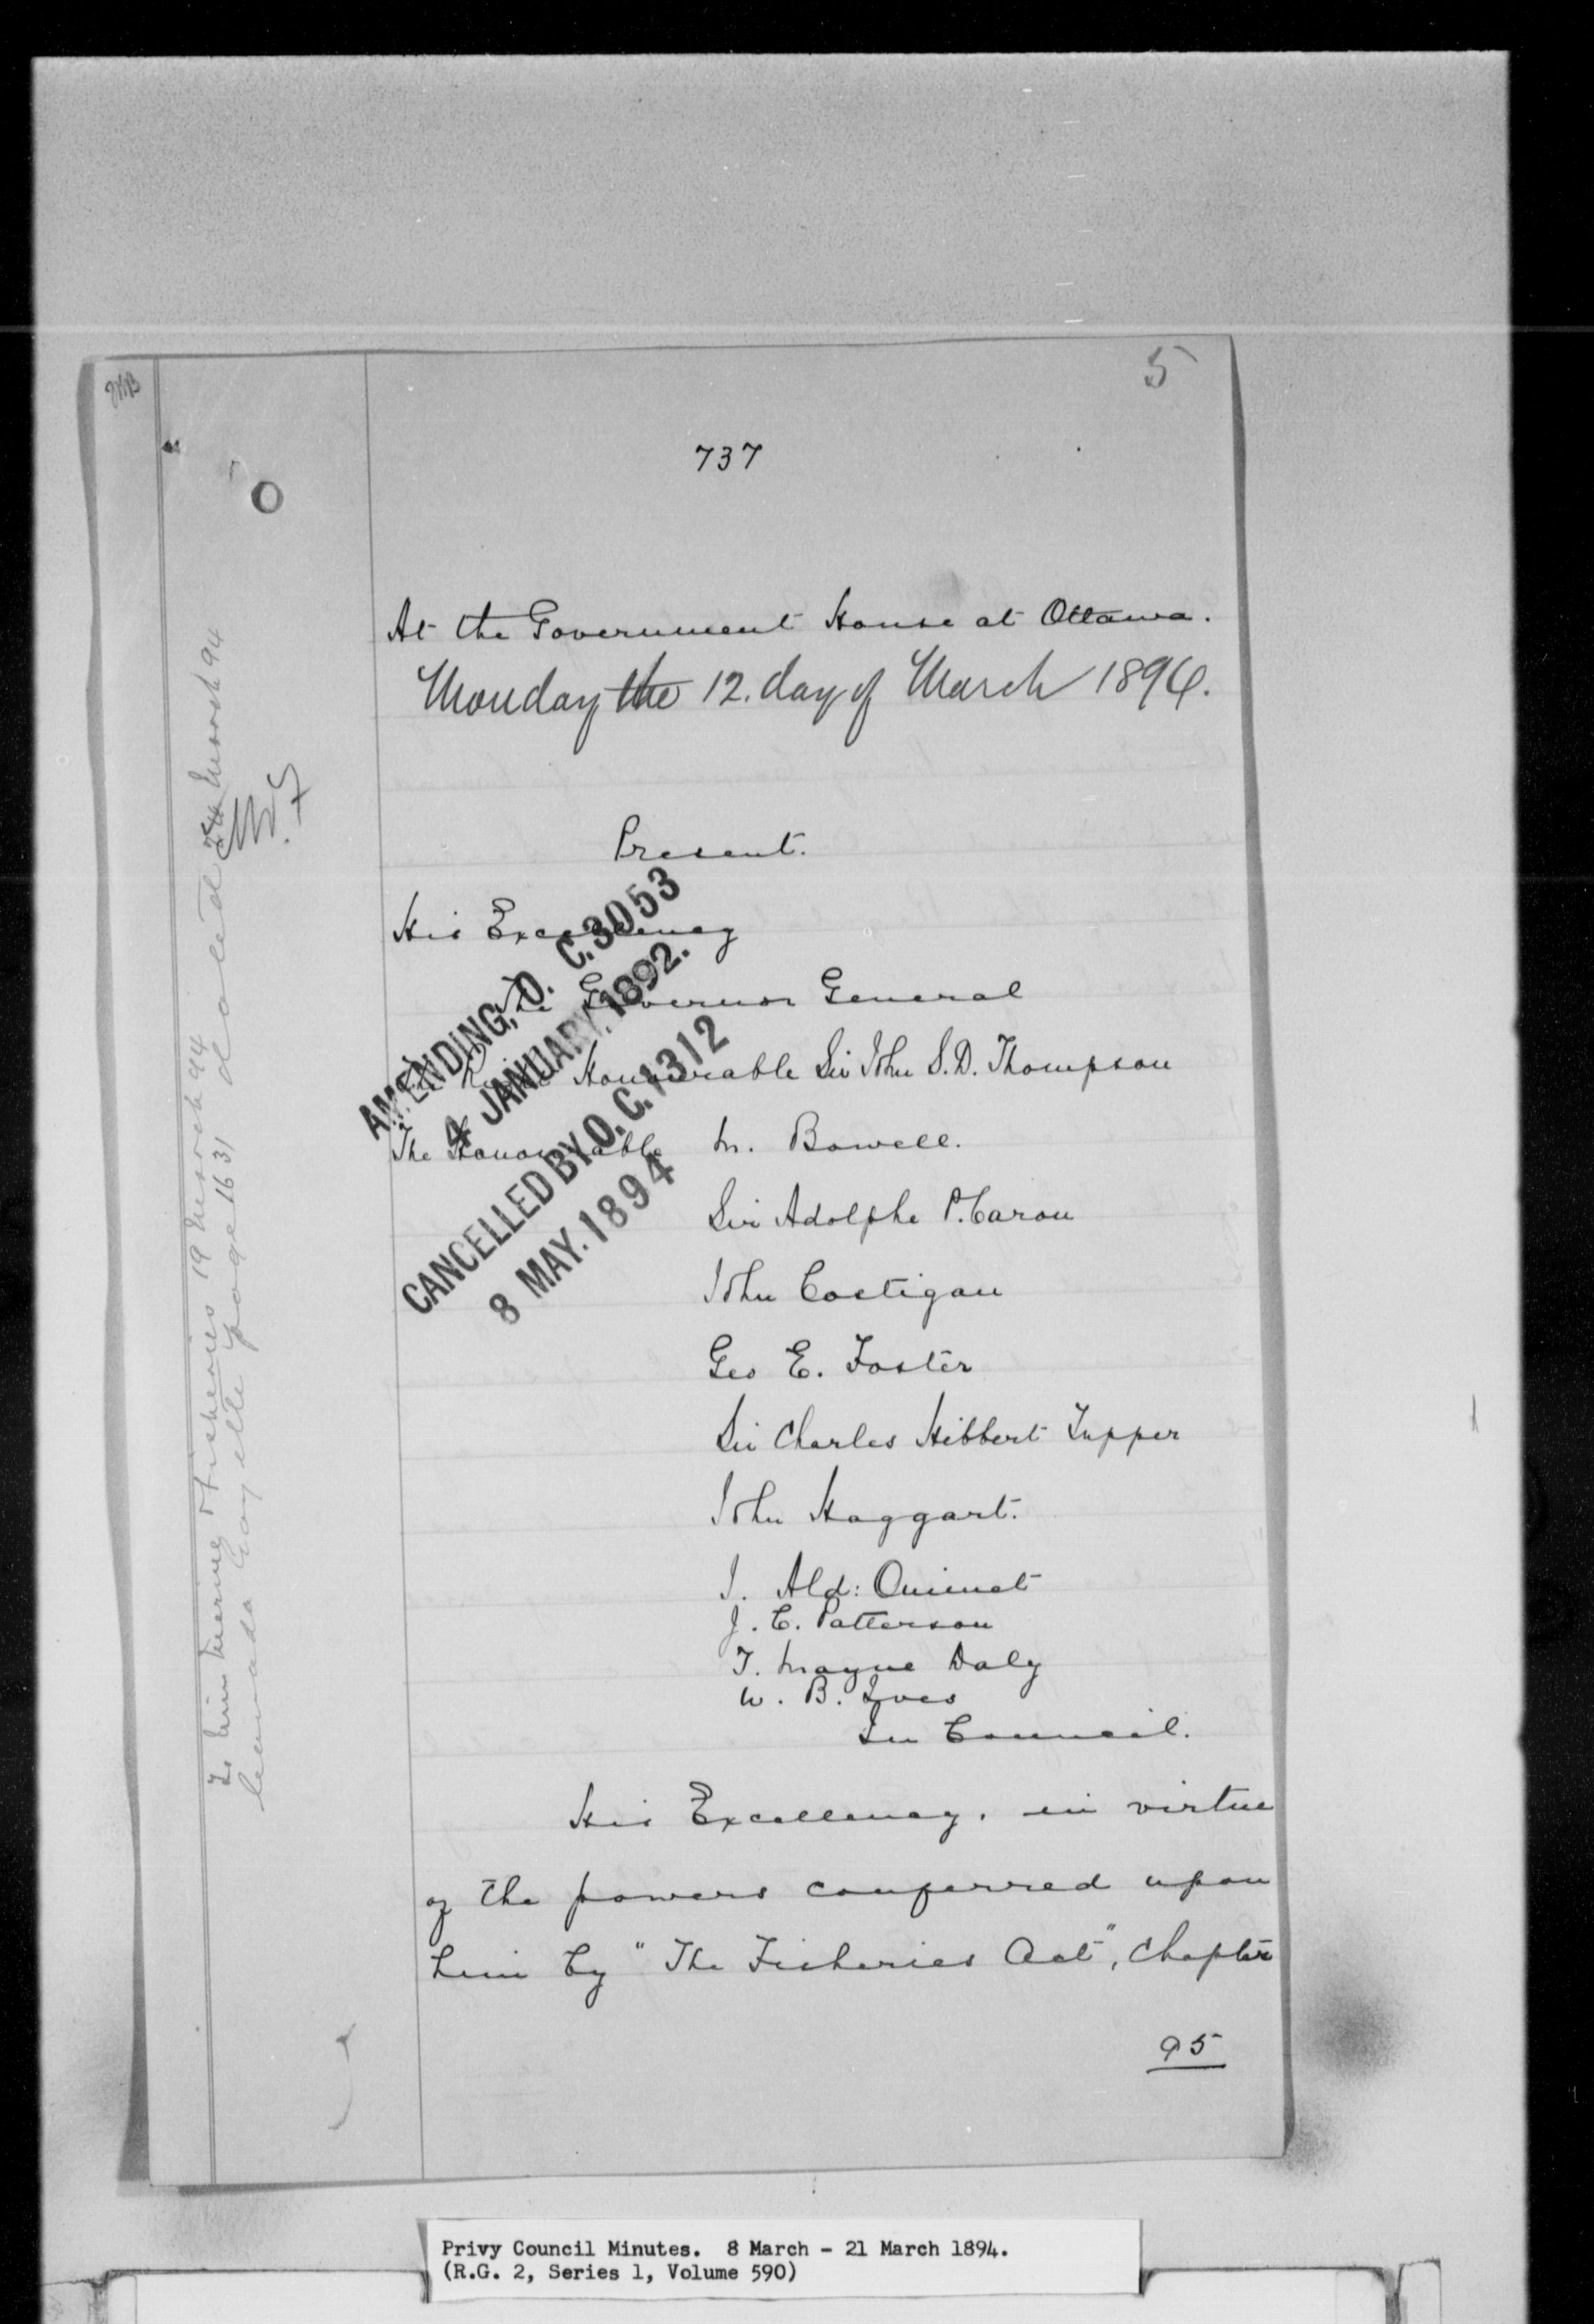 5
737
At the Government House at Ottawa.
Monday the 12. day of March 1894.
Present.
His Excellency
The Governor General
The Right Honourable Sir John S. D. Thompson
The Honourable M. Bowell.
Sir Adolphe P. Caron
John Costigan
Geo E. Foster
Sir Charles Hibbert Tupper
John Haggart.
J. Ald: Ouimet
J. C. Patterson
T. Mayne Daly
W. B. Ives
In Council.
His Excellency, in virtue
of the powers conferred upon
him by "The Fisheries Act", Chapter
95
AMENDING, O. C. 3053
4 JANUARY. 1892.
CANCELLED BY O. C. 1312
8 MAY. 1894
To Min Marine & Fisheries 19 March 94
Canada Gazette page 1631 dated 24 March 94
Privy Council Minutes. 8 March - 21 March 1894.
(R.G. 2, Series 1, Volume 590)